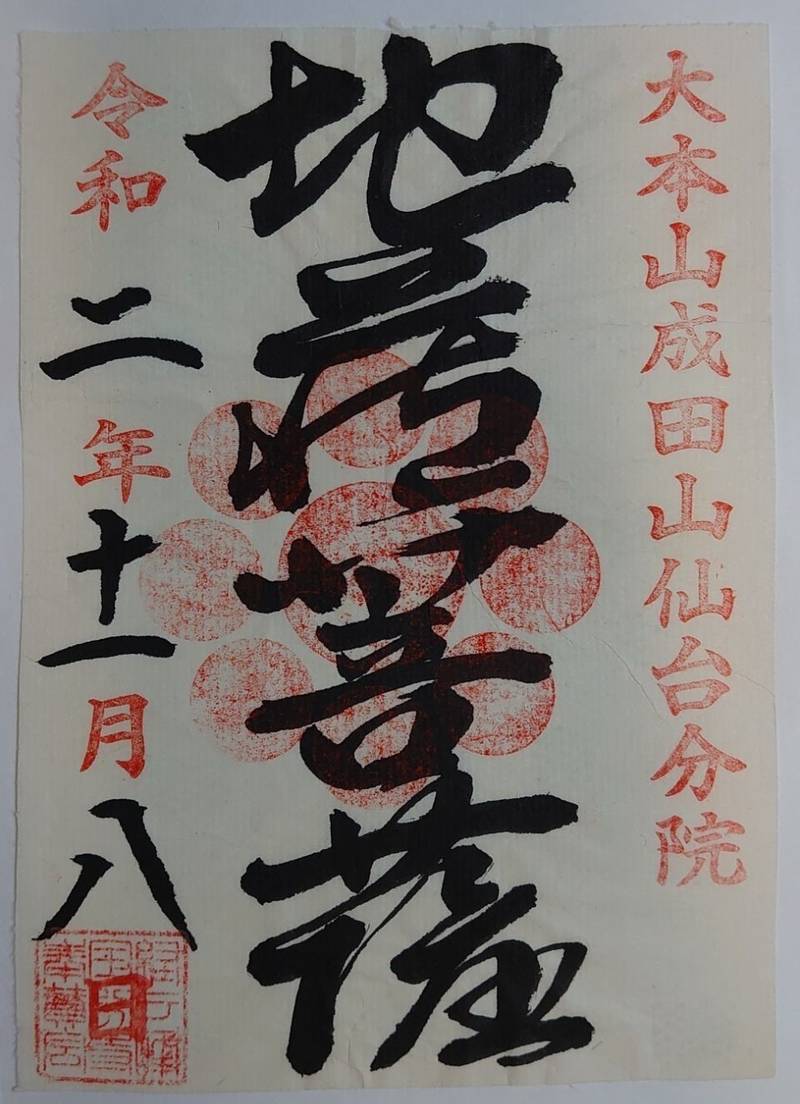 大本山成田山仙台分院
地蔵菩薩
令和二年十一月八日